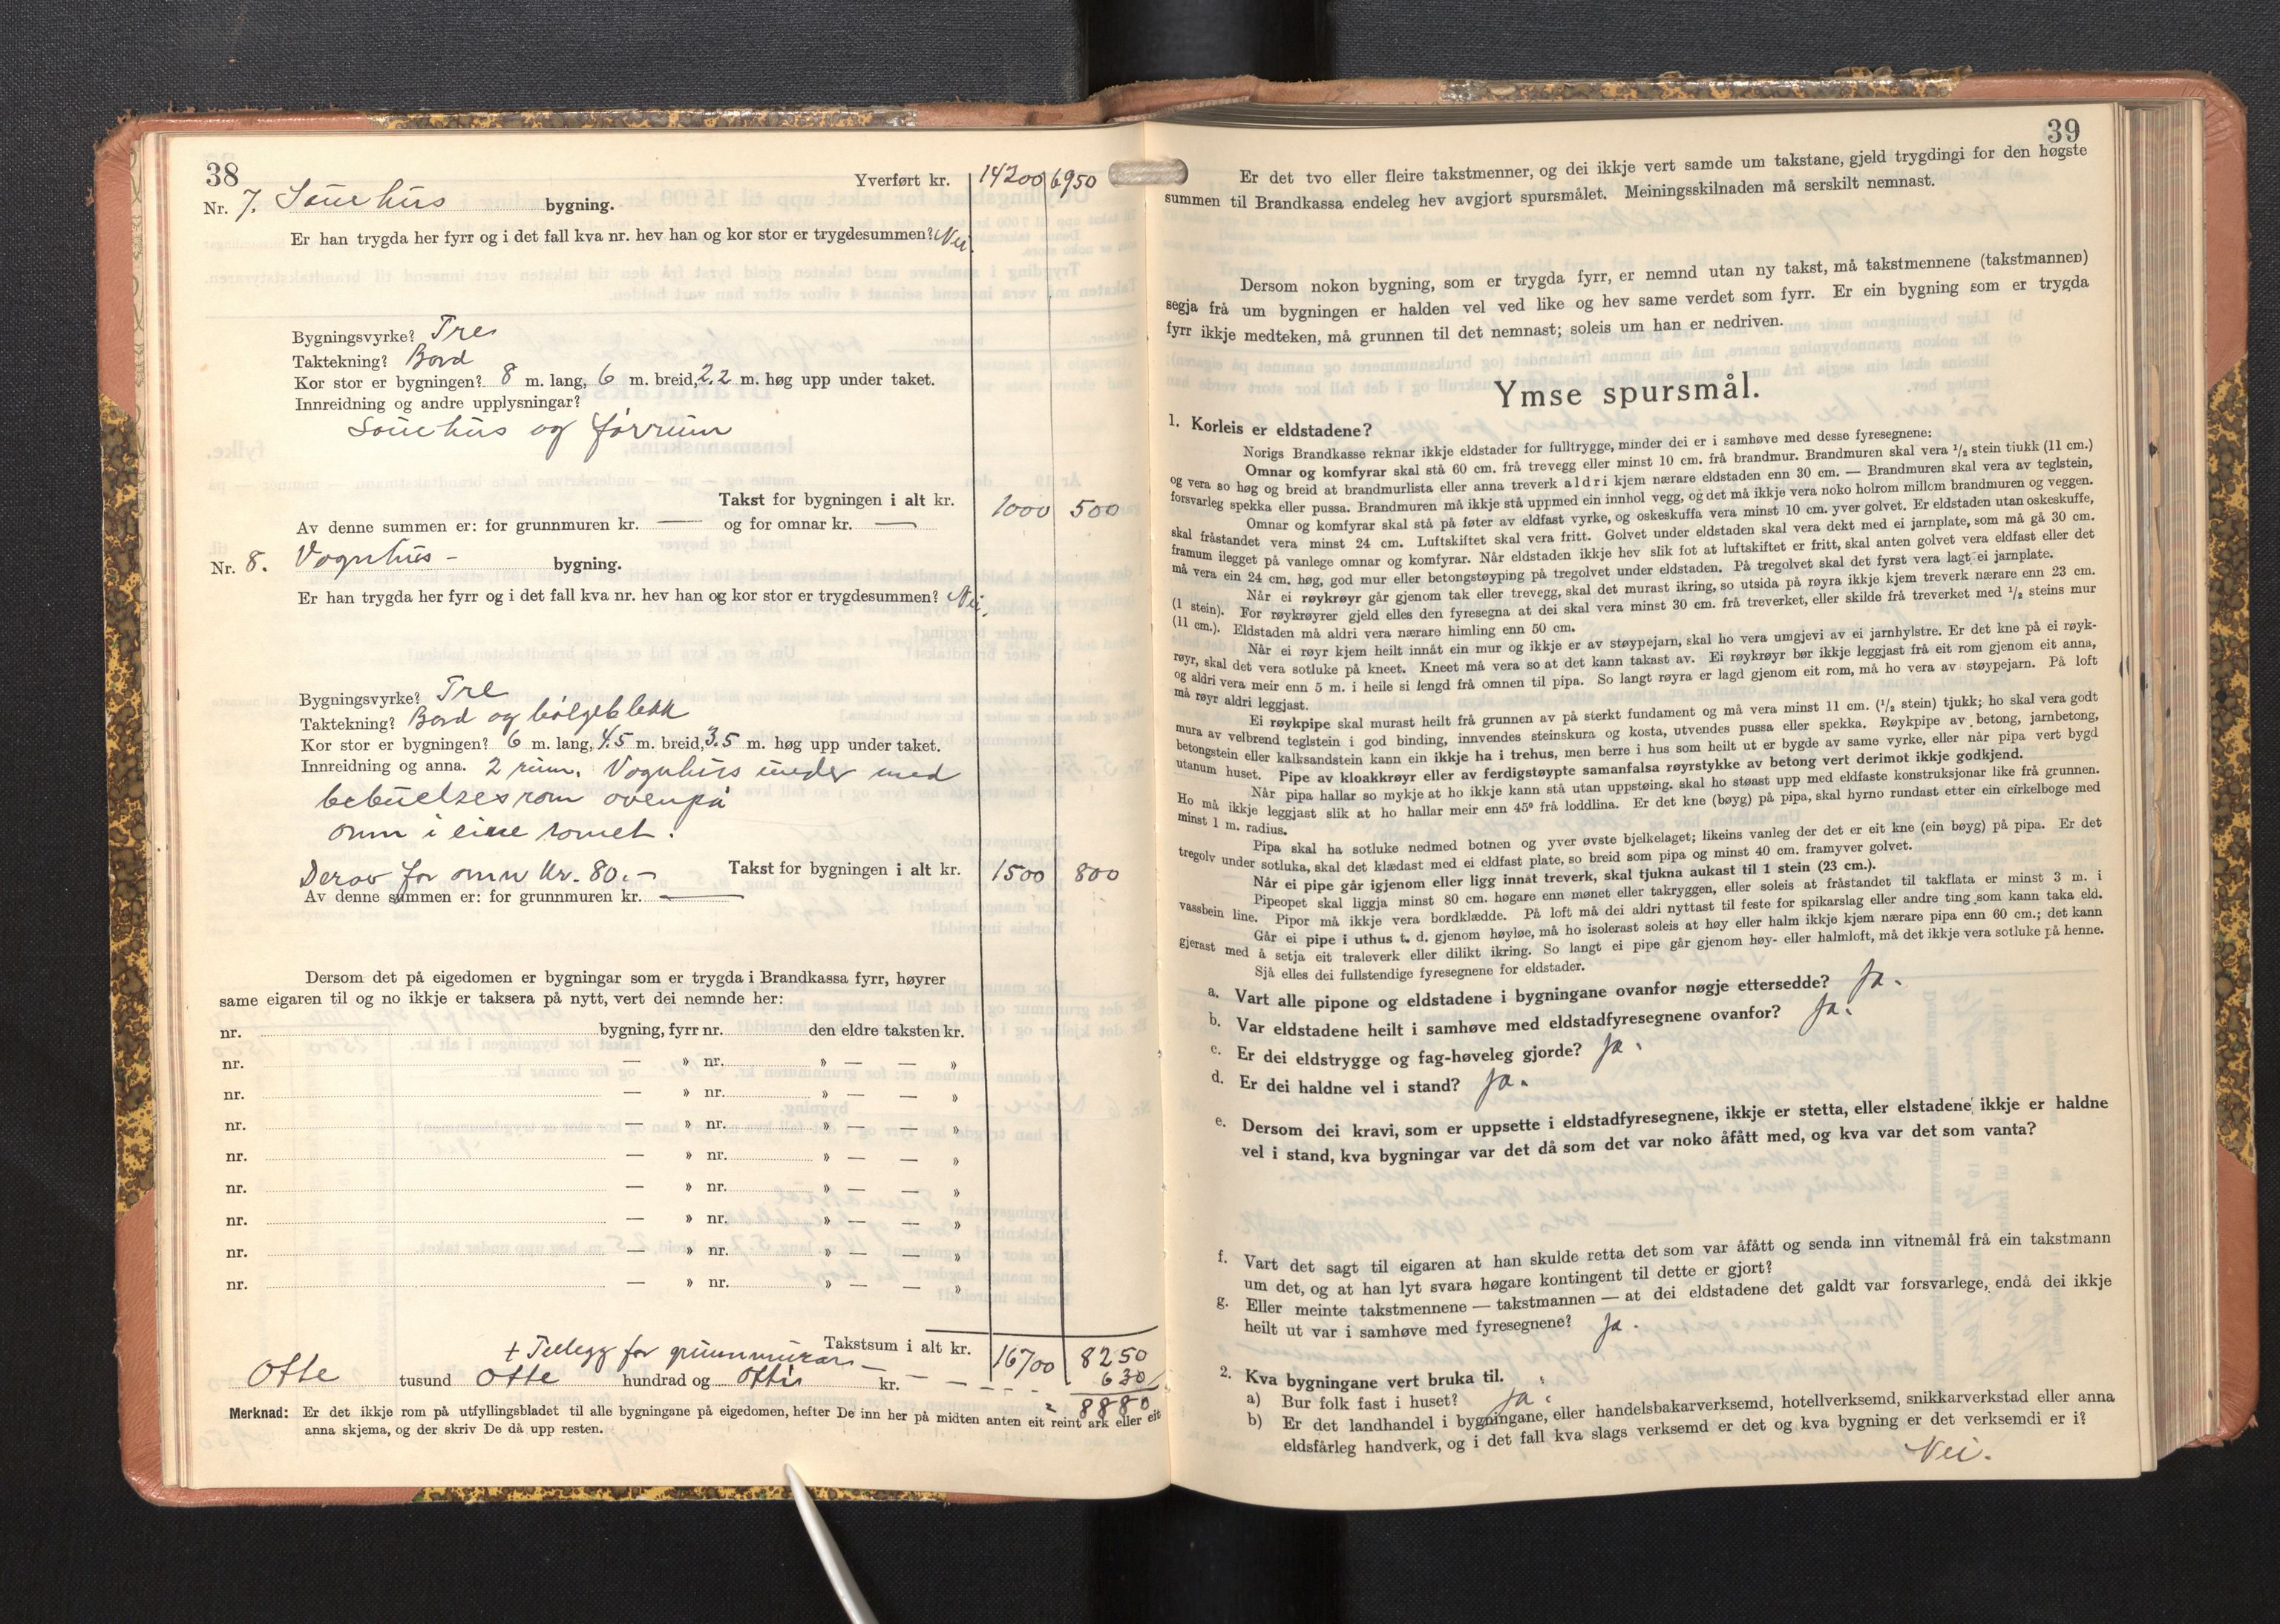 38
Yverført kr. 14200 6950
Nr. 7. Sauehus bygning.
Er han trygda her fyrr og i det fall kva nr. hev han og kor stor er trygdesummen? Nei
Bygningsvyrke? Tre
Taktekning? Bord
Kor stor er bygningen? 8 m. lang, 6 m. breid, 2.2 m. høg upp under taket.
Innreidning og andre upplysningar?
Sauehus og forrum
Takst for bygningen i alt kr. 1000 500
Av denne summen er: for grunnmuren kr. — og for omnar kr. —
Nr. 8. Vognhus - bygning.
Er han trygda her fyrr og i det fall kva nr. hev han og kor stor er trygdesummen? Nei.
Bygningsvyrke? Tre
Taktekning? Bord og bølgeblekk
Kor stor er bygningen? 6 m. lang, 4.5 m. breid, 3.5 m. høg upp under taket.
Innreidning og anna. 2 rum. Vognhus under med
bebuelsesrom ovenpå
omn i eine romet.
Derav for omn Kr. 80.- Takst for bygningen i alt kr. 1500 800
Av denne summen er: for grunnmuren kr. —
Dersom det på eigedomen er bygningar som er trygda i Brandkassa fyrr, høyrer
same eigaren til og no ikkje er taksera på nytt, vert dei nemnde her:
nr. bygning, fyrr nr. den eldre taksten kr.
nr. — » nr. » — — »
nr. — » nr. » — — »
nr. — » nr. » — — »
nr. — » nr. » — — »
nr. — » nr. » — — »
nr. — » nr. » — — »
nr. — » nr. » — — »
nr. — » nr. » — — »
Takstsum i alt kr. 16700 8250
+ Tillegg for grunnmurar — 630
Otte tusund Otte hundrad og Otti kr. - - - - - = 8880
Merknad: Er det ikkje rom på utfyllingsbladet til alle bygningane på eigedomen, hefter De inn her på midten anten eit reint ark eller eit
anna skjema, og der skriv De då upp resten.
39
Er det tvo eller fleire takstmenner, og dei ikkje vert samde um takstane, gjeld trygdingi for den høgste
summen til Brandkassa endeleg hev avgjort spursmålet. Meiningsskilnaden må serskilt nemnast.
Dersom nokon bygning, som er trygda fyrr, er nemnd utan ny takst, må takstmennene (takstmannen)
segja frå um bygningen er halden vel ved like og hev same verdet som fyrr. Er ein bygning som er trygda
fyrr ikkje medteken, må grunnen til det nemnast; soleis um han er nedriven.
Ymse spursmål.
1. Korleis er eldstadene?
Norigs Brandkasse reknar ikkje eldstader for fulltrygge, minder dei er i samhøve med desse fyresegnene:
Omnar og komfyrar skal stå 60 cm. frå trevegg eller minst 10 cm. frå brandmur. Brandmuren skal vera 1/2 stein tiukk (11 cm.)
og vera so høg og breid at brandmurlista eller anna treverk aldri kjem nærare eldstaden enn 30 cm. — Brandmuren skal vera av teglstein,
forsvarleg spekka eller pussa. Brandmuren må ikkje stå uppmed ein innhol vegg, og det må ikkje vera noko holrom millom brandmuren og veggen.
Omnar og komfyrar skal stå på føter av eldfast vyrke, og oskeskuffa vera minst 10 cm. yver golvet. Er eldstaden utan oskeskuffe,
skal fråstandet vera minst 24 cm. Luftskiftet skal vera fritt. Golvet under eldstaden skal vera dekt med ei jarnplate, som må gå 30 cm.
framum ilegget på vanlege omnar og komfyrar. Når eldstaden ikkje hev slik fot at luftskiftet er fritt, skal anten golvet vera eldfast eller det
må vera ein 24 cm. høg, god mur eller betongstøyping på tregolvet under eldstaden. På tregolvet skal det fyrst vera lagt ei jarnplate.
Når ei røykrøyr går gjenom tak eller trevegg, skal det murast ikring, so utsida på røyra ikkje kjem treverk nærare enn 23 cm.
(1 stein). For røykrøyrer gjeld elles den fyresegna at dei skal vera minst 30 cm. frå treverket, eller skilde frå treverket med 1/2 steins mur
(11 cm.). Eldstaden må aldri vera nærare himling enn 50 cm.
Når ei røyr kjem heilt innåt ein mur og ikkje er av støypejarn, skal ho vera umgjevi av ei jarnhylstre. Er det kne på ei røyk-
røyr, skal det vera sotluke på kneet. Kneet må vera so at det kann takast av. Ei røykrøyr bør ikkje leggjast frå eit rom gjenom eit anna,
og aldri vera meir enn 5 m. i heile si lengd frå omnen til pipa. So langt røyra er lagd gjenom eit rom, må ho vera av støypejarn. På loft
må røyr aldri leggjast.
Ei røykpipe skal murast heilt frå grunnen av på sterkt fundament og må vera minst 11 cm. (1/2 stein) tjukk; ho skal vera godt
mura av velbrend teglstein i god binding, innvendes steinskura og kosta, utvendes pussa eller spekka. Røykpipe av betong, jarnbetong,
betongstein eller kalksandstein kann ein ikkje ha i trehus, men berre i hus som heilt ut er bygde av same vyrke, eller når pipa vert bygd
utanum huset. Pipe av kloakkrøyr eller av ferdigstøypte samanfalsa røyrstykke av betong vert derimot ikkje godkjend.
Når pipa hallar so mykje at ho ikkje kann stå utan uppstøing. skal ho støast upp med eldfaste konstruksjonar like frå grunnen.
Ho må ikkje leggjast slik at ho hallar meir enn 45° frå loddlina. Er det kne (bøyg) på pipa, skal hyrno rundast etter ein cirkelboge med
minst 1 m. radius.
Pipa skal ha sotluke nedmed botnen og yver øvste bjelkelaget; likeins vanleg der det er eit kne (ein bøyg) på pipa. Er det
tregolv under sotluka, skal det klædast med ei eldfast plate, so breid som pipa og minst 40 cm. framyver golvet.
Når ei pipe går igjenom eller ligg innåt treverk, skal tjukna aukast til 1 stein (23 cm.).
Pipeopet skal liggja minst 80 cm. høgare enn mønet eller takryggen, eller soleis at fråstandet til takflata er minst 3 m. i
vassbein line. Pipor må ikkje vera bordklædde. På loft må dei aldri nyttast til feste for spikarslag eller andre ting som kann taka eld.
Går ei pipe i uthus t. d. gjenom høyløe, må ho isolerast soleis at høy eller halm ikkje kjem nærare pipa enn 60 cm.; det kann
gjerast med å setja eit traleverk eller dilikt ikring. So langt ei pipe går gjenom høy- eller halmloft, må det ikkje vera sotluke på henne.
Sjå elles dei fullstendige fyresegnene for eldstader.
a. Vart alle pipone og eldstadene i bygningane ovanfor nøgje ettersedde? Ja.
b. Var eldstadene heilt i samhøve med eldstadfyresegnene ovanfor? Ja.
c. Er dei eldstrygge og fag-høveleg gjorde? Ja.
d. Er dei haldne vel i stand? Ja.
e. Dersom dei kravi, som er uppsette i eldstadfyresegnene, ikkje er stetta, eller elstadene ikkje er haldne
vel i stand, kva bygningar var det då som det var noko åfått med, og kva var det som vanta?
f. Vart det sagt til eigaren at han skulde retta det som var åfått og senda inn vitnemål frå ein takstmann
um det, og at han lyt svara høgare kontingent til dette er gjort?
g. Eller meinte takstmennene — takstmannen — at dei eldstadene det galdt var forsvarlege, endå dei ikkje
heilt ut var i samhøve med fyresegnene? Ja.
2. Kva bygningane vert bruka til.
a) Bur folk fast i huset? Ja.
b) Er det landhandel i bygningane, eller handelsbakarverksemd, hotellverksemd, snikkarverkstad eller anna
eldsfårleg handverk, og i det fall kva slags verksemd er det og kva bygning er det verksemdi er i?
Nei.